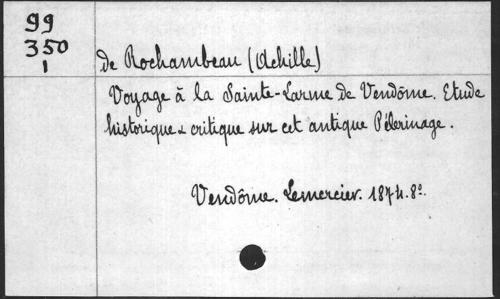 99
350
1
de Rochambeau (Achille)
Voyage à la Sainte-Larme de Vendôme. Etude
historique & critique sur cet antique Pélerinage.
Vendôme. Lemercier. 1874. 8º.